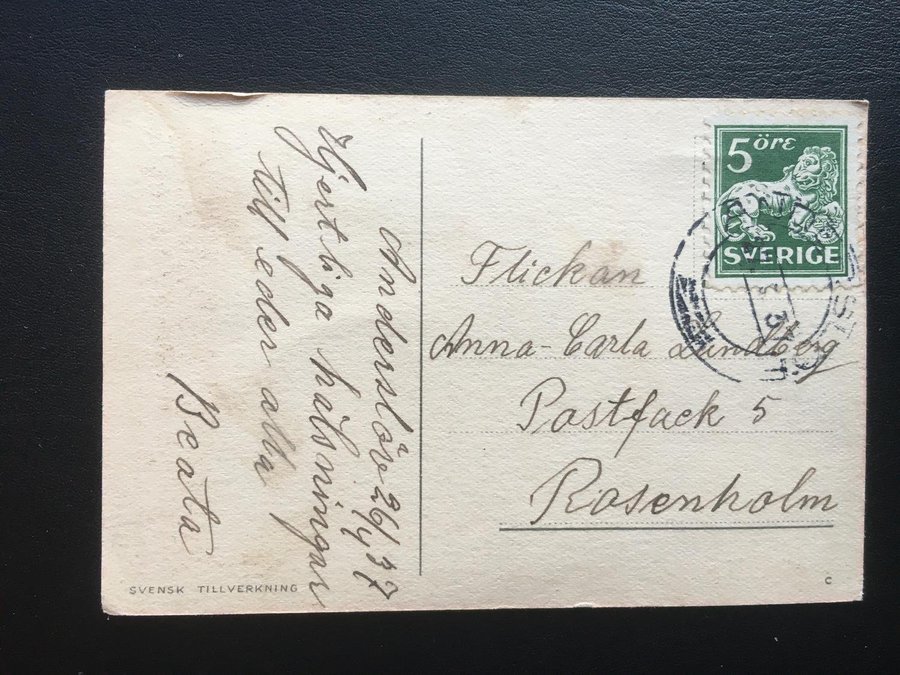 Anderslöv 26/4 37
Hjertliga hälsningar
till eder alla
Beata
5 ÖRE
SVERIGE
Flickan
Anna-Carla Lundberg
Postfack 5
Rosenholm
SVENSK TILLVERKNING
C